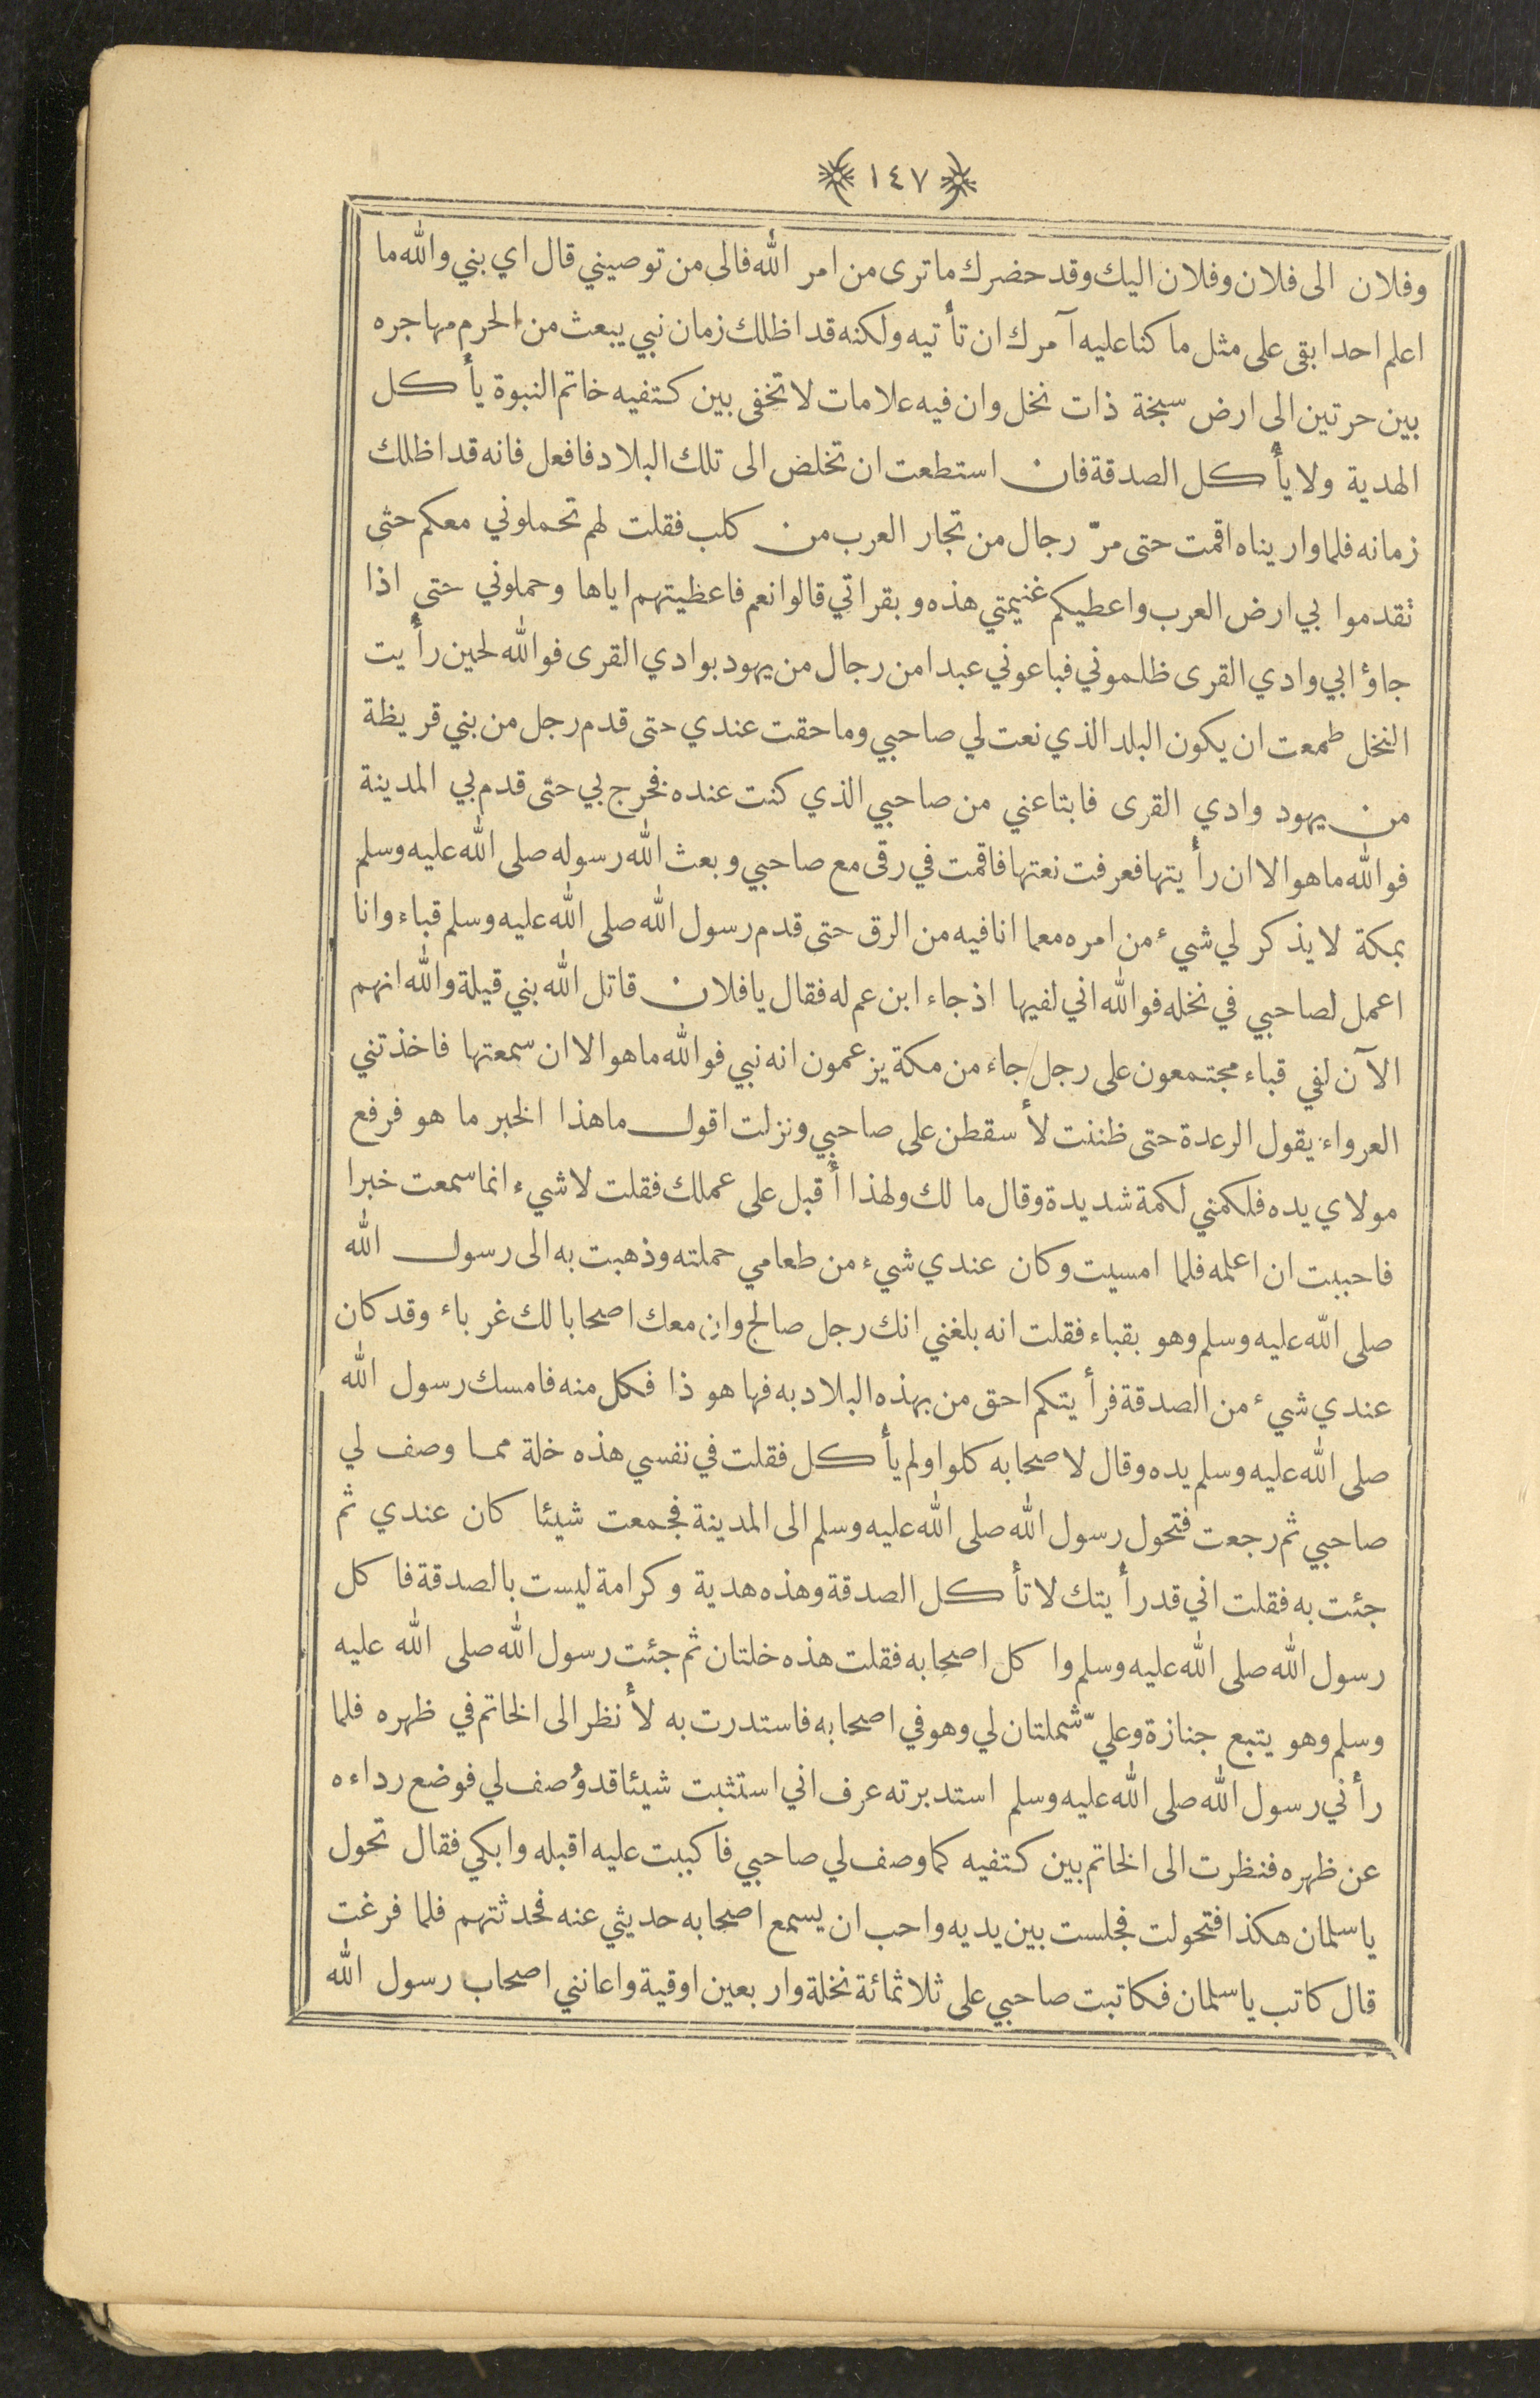 ١٤٧
وفلان الى فلان وفلان اليك وقد حضرك ما ترى من امر الله فالى من توصيني قال اي بني والله ما
اعلم احدا بقى على مثل ما كنا عليه آمرك ان تأتيه ولكنه قد اظلك زمان نبي يبعث من الحرم مهاجره
بين حرتين الى ارض سبخة ذات نخل وان فيه علامات لا تخفى بين كتفيه خاتم النبوة يأكل
الهدية ولا يأكل الصدقة فان استطعت ان تخلض الى تلك البلاد فافعل فانه قد اظلك
زمانه فلما واريناه اقمت حتى مرّ رجال من تجار العرب من كلب فقلت لهم تحملوني معكم حثى
ثقدموا بي ارض العرب واعطيكم غنيمتي هذه وبقراتي قالوا نعم فاعظيتهم اياها وحملوني حتى اذا
جاؤا بي وادي القرى ظلموني فباعوني عبدا من رجال من يهود بوادي القرى فوالله لحين رأيت
النخل طمعت ان يكون البلد الذي نعت لي صاحبي وما حقت عندي حتى قدم رجل من بني قريظة
من يهود وادي القرى فابتاعني من صاحبي الذي كنت عنده فخرج بي حتى قدم بي المدينة
فوالله ما هو الا ان رأيتها فعرفت نعتها فاقمت في رقى مع صاحبي وبعث الله رسوله صلى الله عليه وسلم
بمكة لا يذكر لي شيء من امره معما انا فيه من الرق حتى قدم رسول الله صلى الله عليه وسلم قباء وانا
اعمل لصاحبي في نخله فوالله اني لفيها اذ جاء ابن عم له فقال يا فلان قاتل الله بني قيلة والله انهم
الآن لفي قباء مجتمعون على رجل جاء من مكة يزعمون انه نبي فوالله ما هو الا ان سمعتها فاخذتني
العرواء يقول الرعدة حتى ظننت لأسقطن على صاحبي ونزلت اقول ما هذا الخبر ما هو فرفع
مولاي يده فلكمني لكمة شديدة وقال ما لك ولهذا أقبل على عملك فقلت لا شيء انما سمعت خبرا
فاحببت ان اعلمه فلما امسيت وكان عندي شيء من طعامي حملته وذهبت به الى رسول الله
صلى الله عليه وسلم وهو بقباء فقلت انه بلغني انك رجل صالح وان معك اصحابا لك غرباء وقد كان
عندي شيء من الصدقة فرأيتكم احق من بهذه البلاد به فها هو ذا فكل منه فامسك رسول الله
صلى الله عليه وسلم يده وقال لاصحابه كلوا ولم يأكل فقلت في نفسي هذه خلة مما وصف لي
صاحبي ثم رجعت فتحول رسول الله صلى الله عليه وسلم الى المدينة فجمعت شيئا كان عندي ثم
جئت به فقلت اني قد رأيتك لا تأكل الصدقة وهذه هدية وكرامة ليست بالصدقة فاكل
رسول الله صلى الله عليه وسلم واكل اصحابه فقلت هذه خلتان ثم جئت رسول الله صلى الله عليه
وسلم وهو يتبع جنازة وعليّ شملتان لي وهو في اصحابه فاستدرت به لأنظر الى الخاتم في ظهره فلما
رأني رسول الله صلى الله عليه وسلم استدبرته عرف اني استثبت شيئا قد وُصف لي فوضع رداءه
عن ظهره فنظرت الى الخاتم بين كتفيه كما وصف لي صاحبي فاكببت عليه اقبله وابكي فقال تحول
يا سلمان هكذا فتحولت فجلست بين يديه واحب ان يسمع اصحابه حديثي عنه فحدثتهم فلما فرغت
قال كاتب يا سلمان فكاتبت صاحبي على ثلاثمائة نخلة واربعين اوقية واعانني اصحاب رسول الله